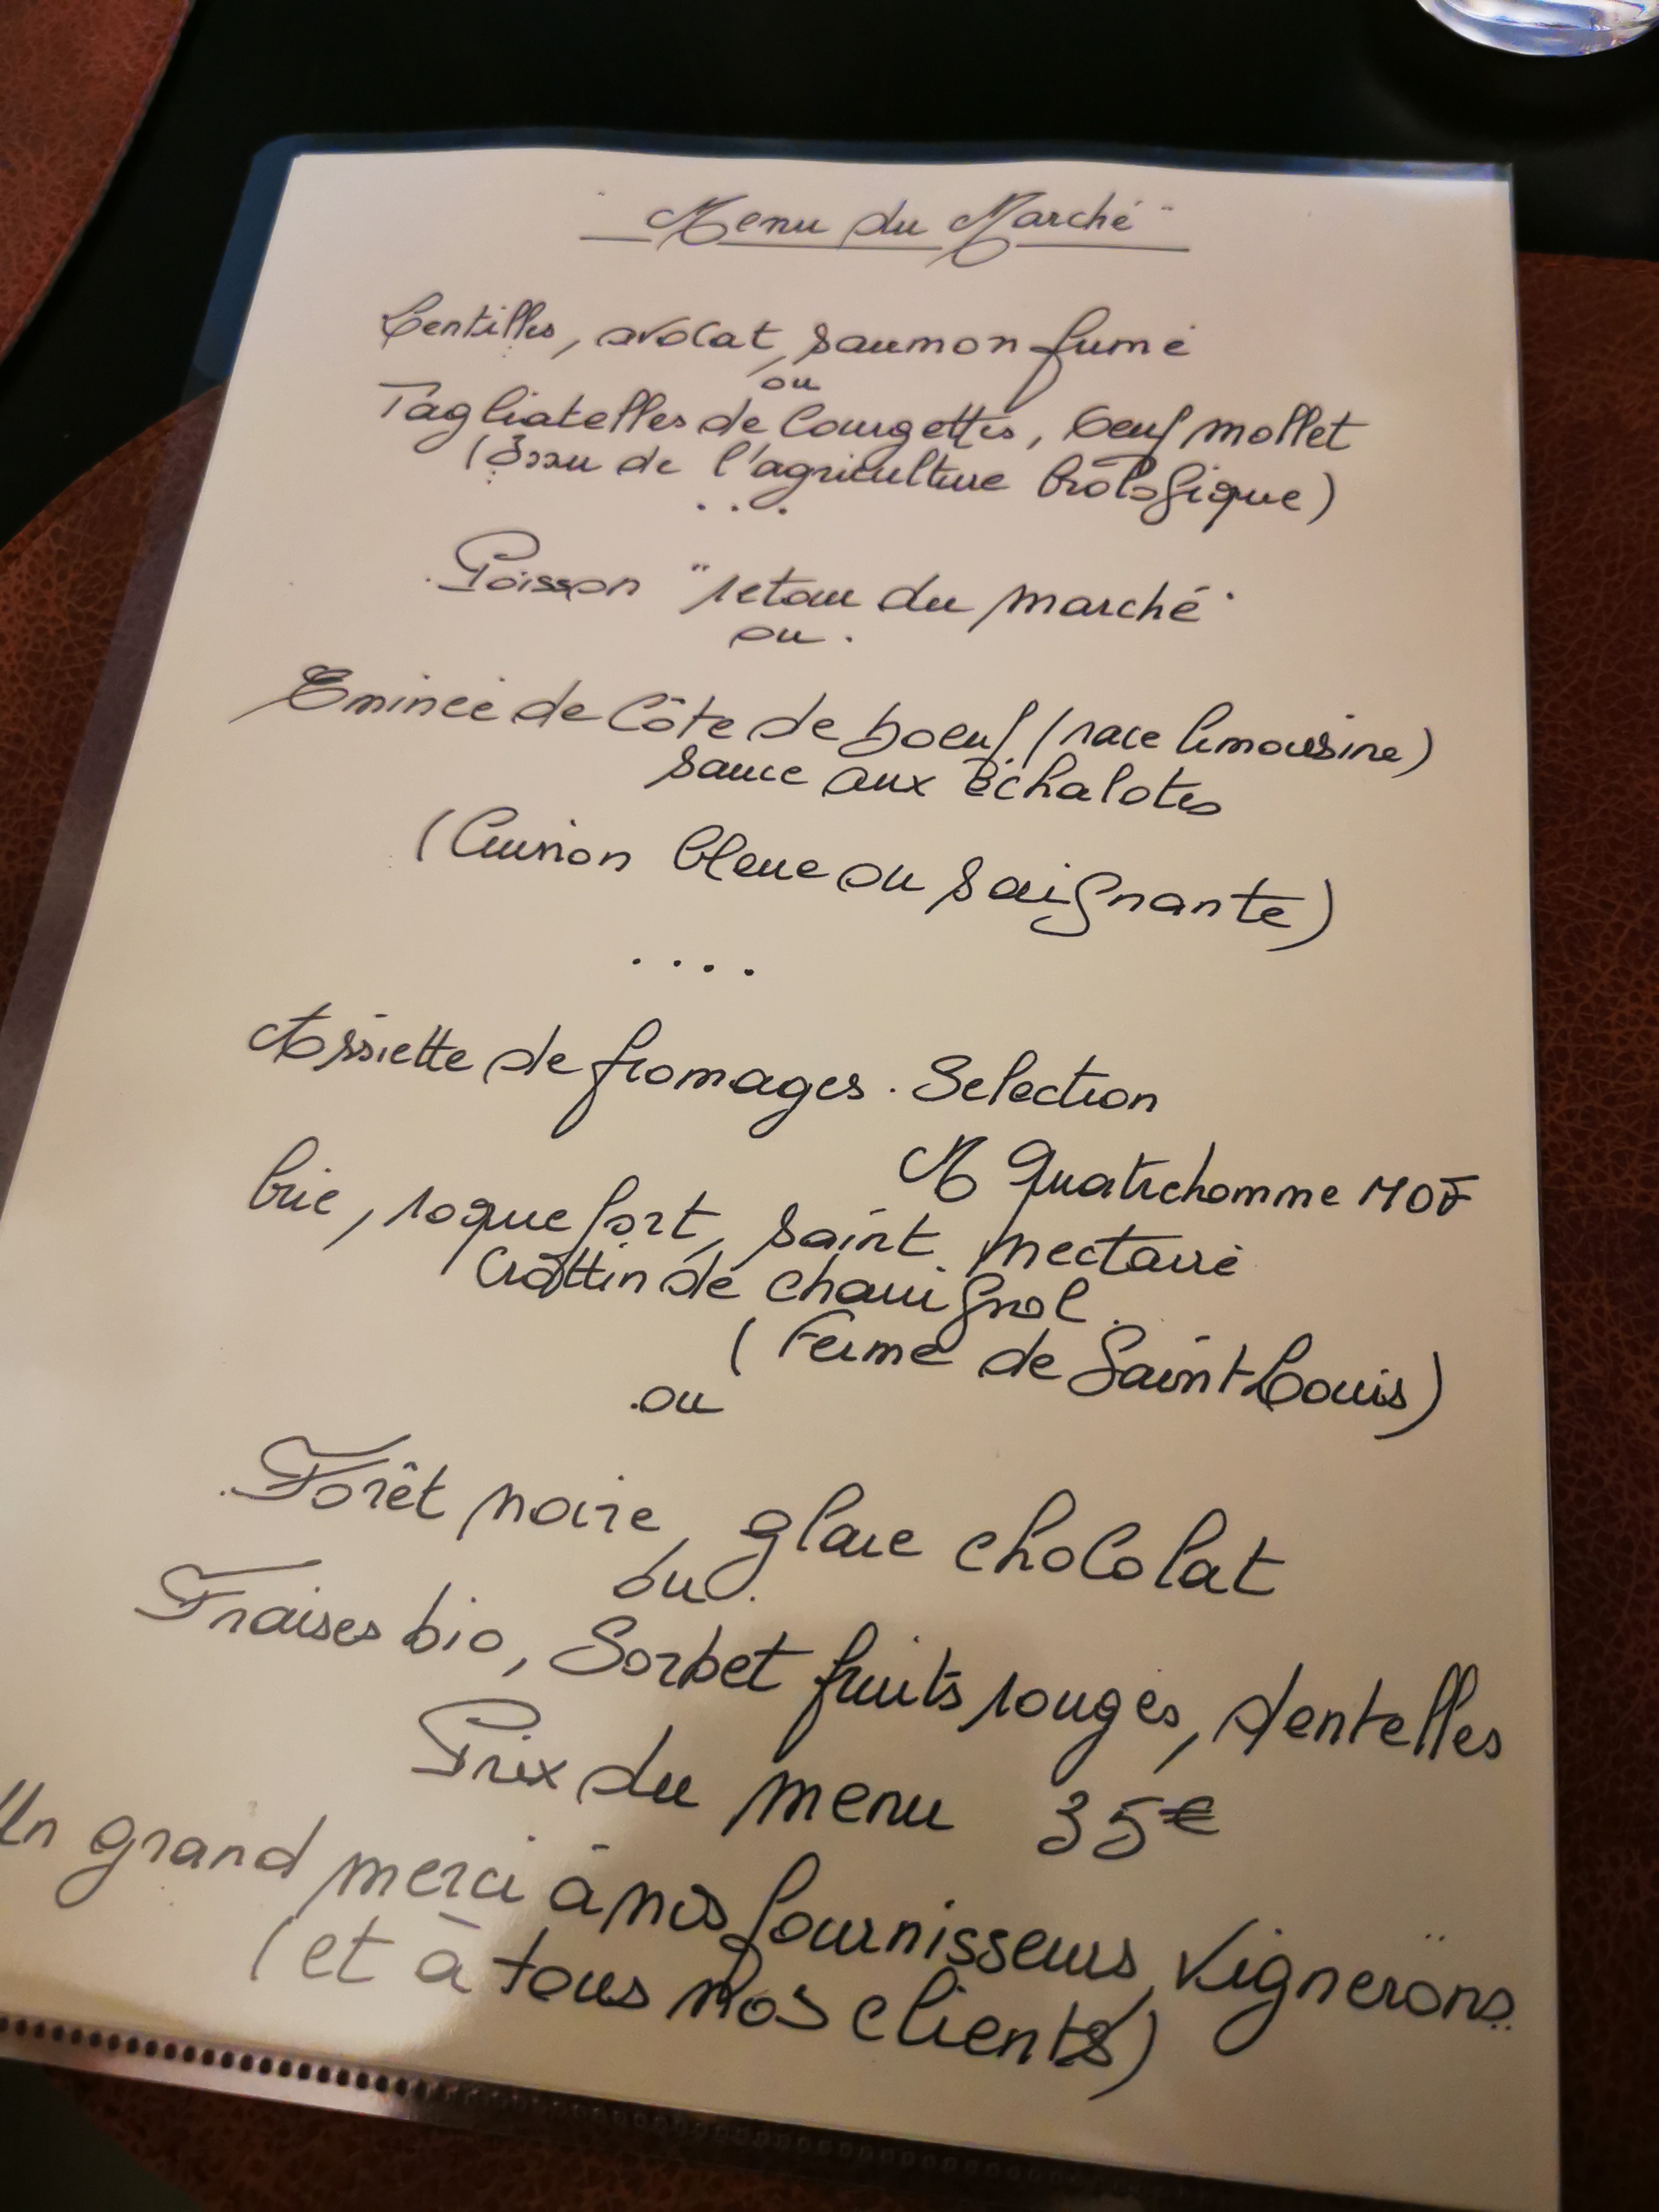 "Menu du Marché"
Lentilles, avocat, saumon fumé
ou
Tagliatelles de Courgettes, Oeuf mollet
(Issu de l'agriculture biologique)
...
Poisson "retour du marché"
ou.
Emincé de Côte de boeuf (race limousine)
sauce aux échalotes
(Cuisson bleue ou saignante)
....
Assiette de fromages. Selection
M Quatrehomme MOF
brie, roquefort, saint nectaire
Crottin de chavignol.
(Ferme de Saint Louis)
ou
Forêt noire, glace chocolat
ou.
Fraises bio, Sorbet fruits rouges, dentelles
Prix du menu 35€
Un grand merci à nos fournisseurs, Vignerons..
(et à tous nos clients)